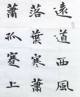 遠道西風
落葉寒蕭
蕭孤蹇上